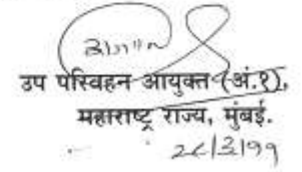 उप परिवहन आयुक्त (अं.१),
महाराष्ट्र राज्य, मुंबई.